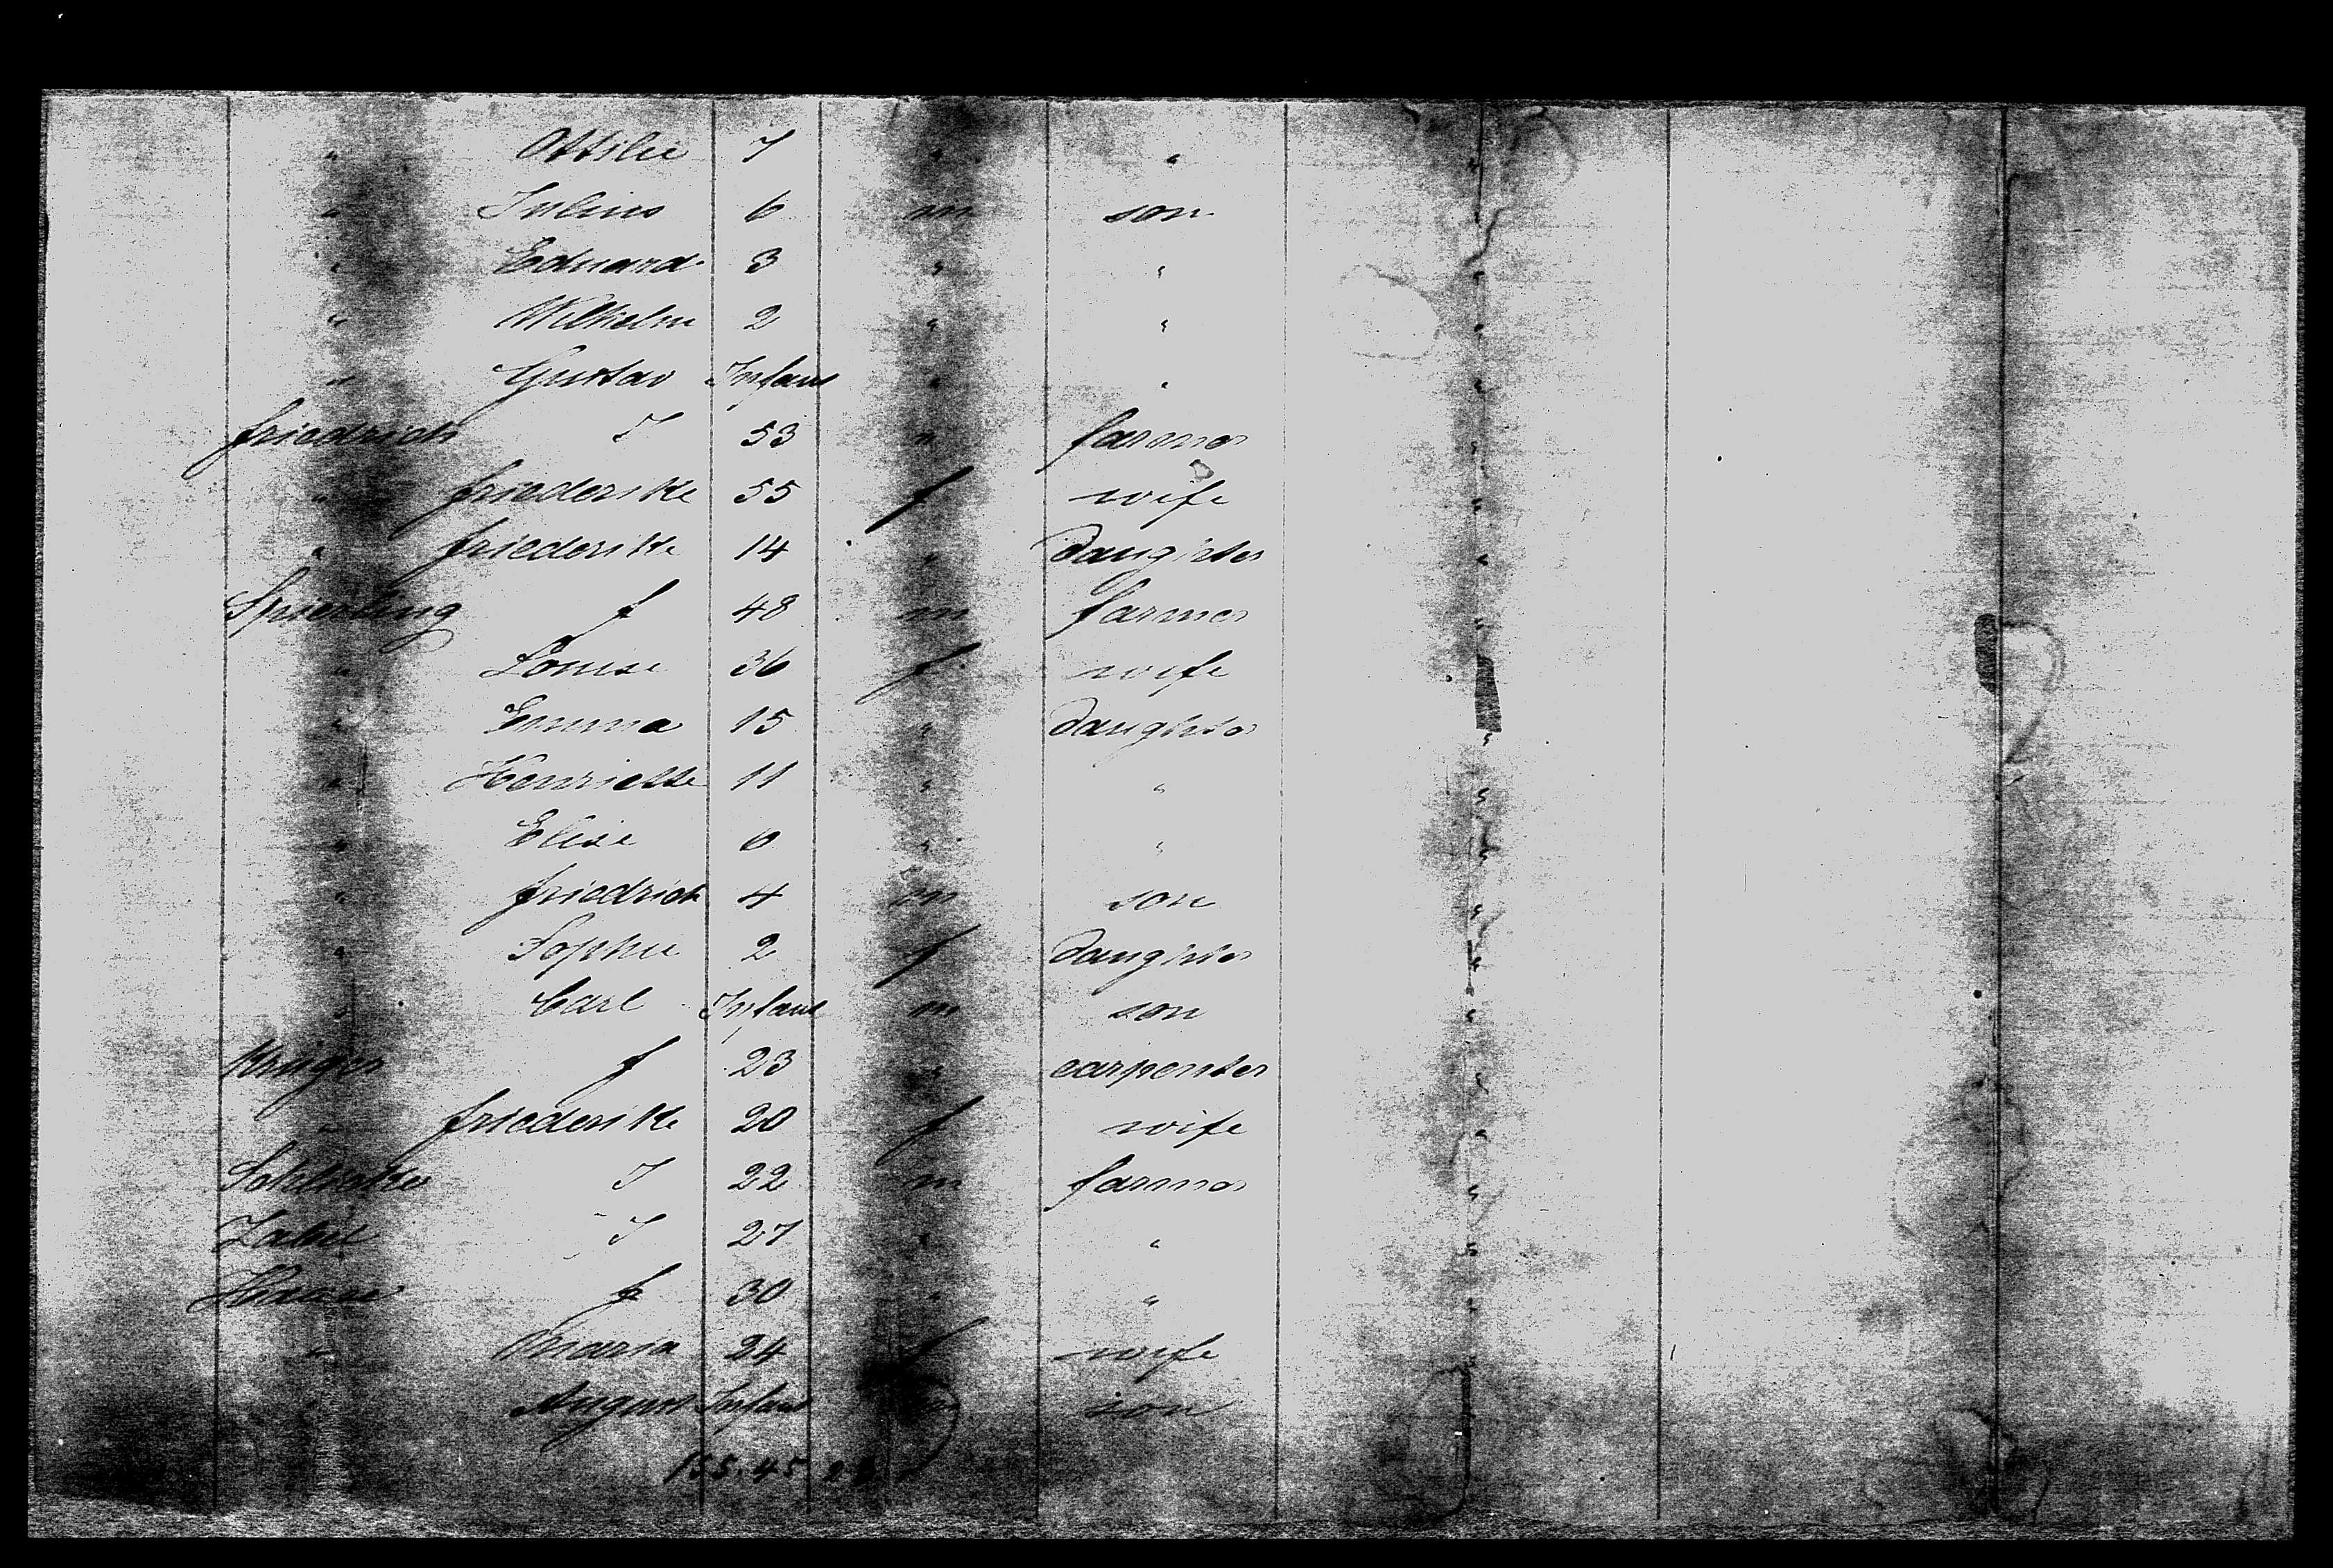 " Ottilie 7 " " "
" Julius 6 m son "
" Eduard 3 " " "
" Wilhelm 2 " " "
" Gustav Infant " " "
friedrich J 53 " farmer "
" friederike 55 f wife "
" friederike 14 " Daughter "
Spierling f 48 m farmer "
" Louise 36 f wife
" Emma 15 " Daughter "
" Henriette 11 " " "
" Elise 6 " " "
" friedrich 4 m son "
" Sophie 2 f Daughter "
" Carl Infant m son "
Kruger f 23 " carpenter "
" friederike 20 f wife "
J 22 m farmer "
Zabel J 27 " " "
f 30 " " "
" Maria 24 f wife "
August Infant m son
155. 45